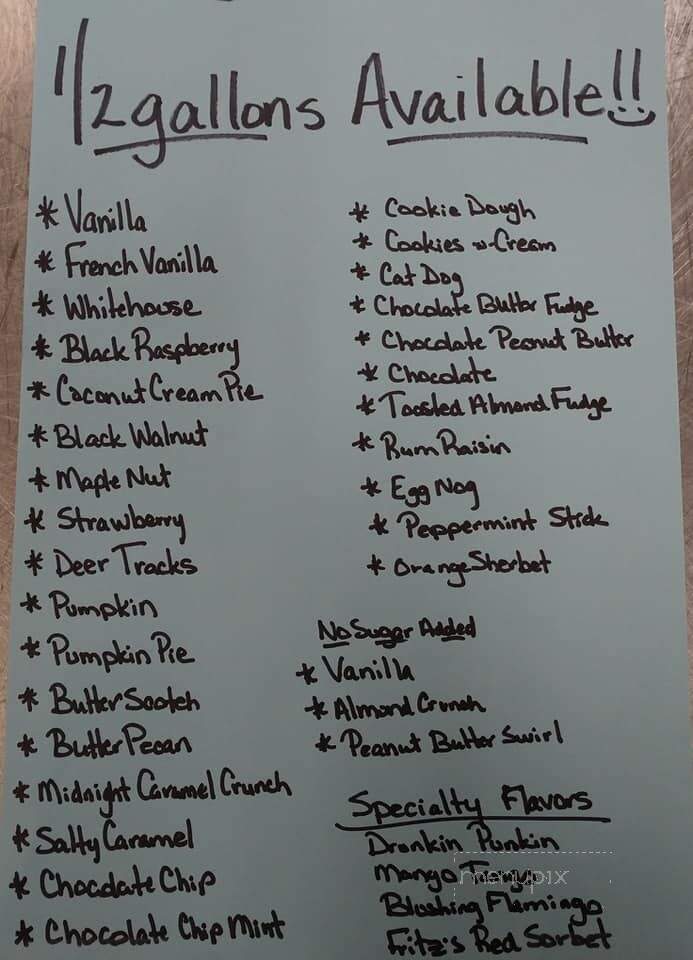 1/2 gallons Available!!
* Vanilla
* French Vanilla
* Whitehouse
* Black Raspberry
* Coconut Cream Pie
* Black Walnut
* Maple Nut
* Strawberry
* Deer Tracks
* Pumpkin
* Pumpkin Pie
* Butter Scotch
* Butter Pecan
* Midnight Caramel Crunch
* Salty Caramel
* Chocolate Chip
* Chocolate Chip Mint
* Cookie Dough
* Cookies w Cream
* Cat Dog
* Chocolate Butter Fudge
* Chocolate Peanut Butter
* Chocolate
* Toasted Almond Fudge
* Rum Raisin
* Egg Nog
* Peppermint Stick
* Orange Sherbet
No Sugar Added
* Vanilla
* Almond Crunch
* Peanut Butter Swirl
Specialty Flavors
Drunkin Punkin
Mango
Blushing Flamingo
Fritz's Red Sorbet
menupix